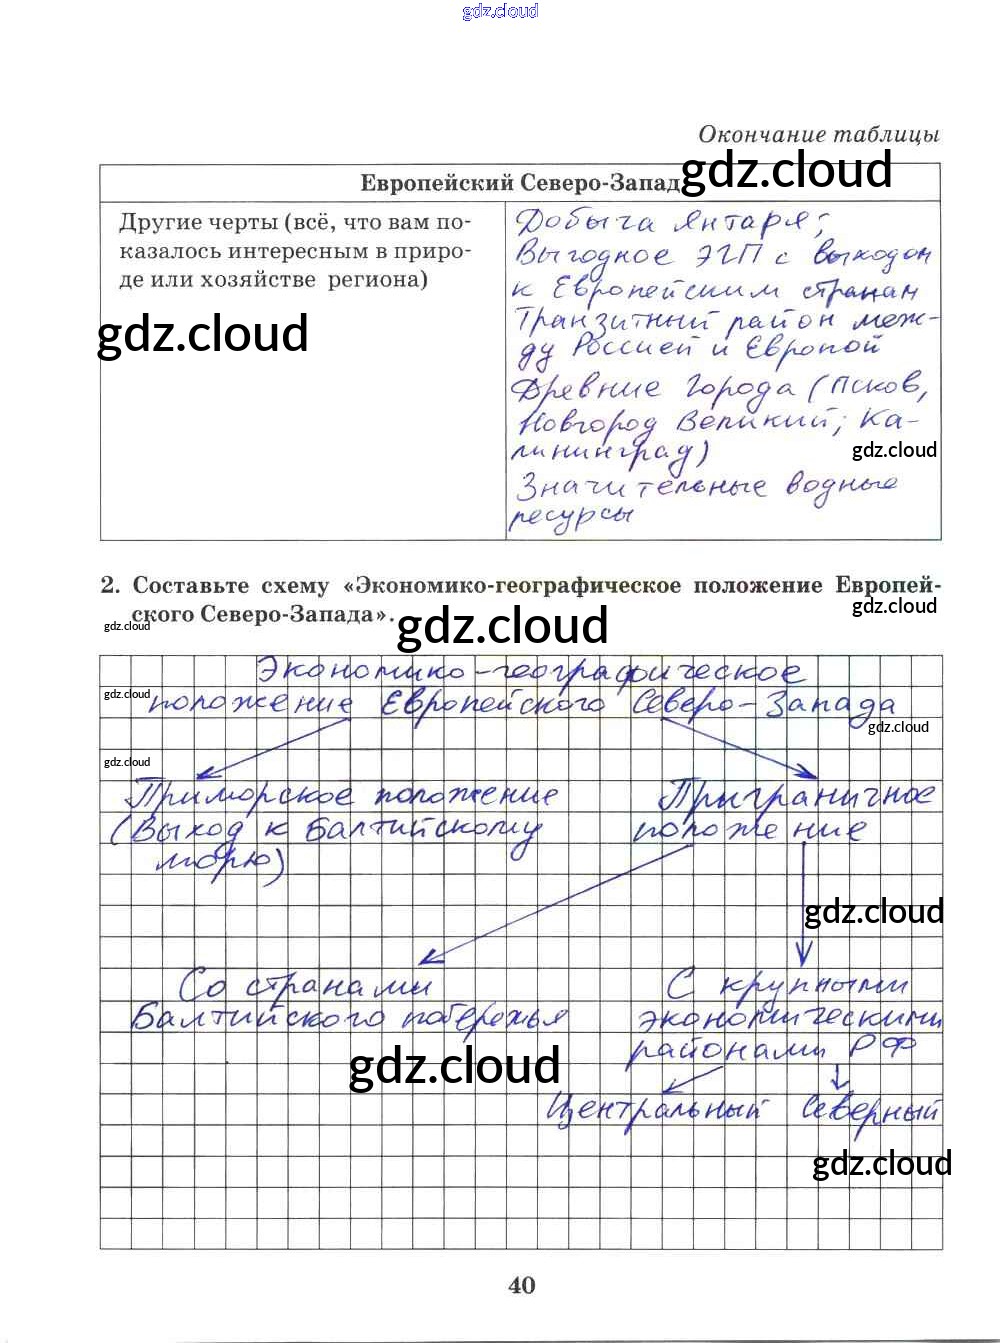 gdz.cloud
Окончание таблицы
Европейский Северо-Запад
gdz.cloud
Другие черты (всё, что вам по-
казалось интересным в приро-
де или хозяйстве региона)
gdz.cloud
Добыча янтаря;
Выгодное ЭГП с выходом
к Европейским странам
Транзитный район меж-
ду Россией и Европой
Древние города (Псков,
Новгород Великий; Ка-
лининград)
gdz.cloud
Значительные водные
ресурсы
2. Составьте схему «Экономико-географическое положение Европей-
ского Северо-Запада».
gdz.cloud
gdz.cloud
gdz.cloud
Экономико-географическое
положение Европейского Северо-Запада
gdz.cloud
gdz.cloud
gdz.cloud
Приморское положение
(Выход к Балтийскому
морю)
Приграничное
положение
gdz.cloud
Со странами
Балтийского побережья
С крупными
экономическими
районами РФ
gdz.cloud
Центральный Северный
gdz.cloud
40